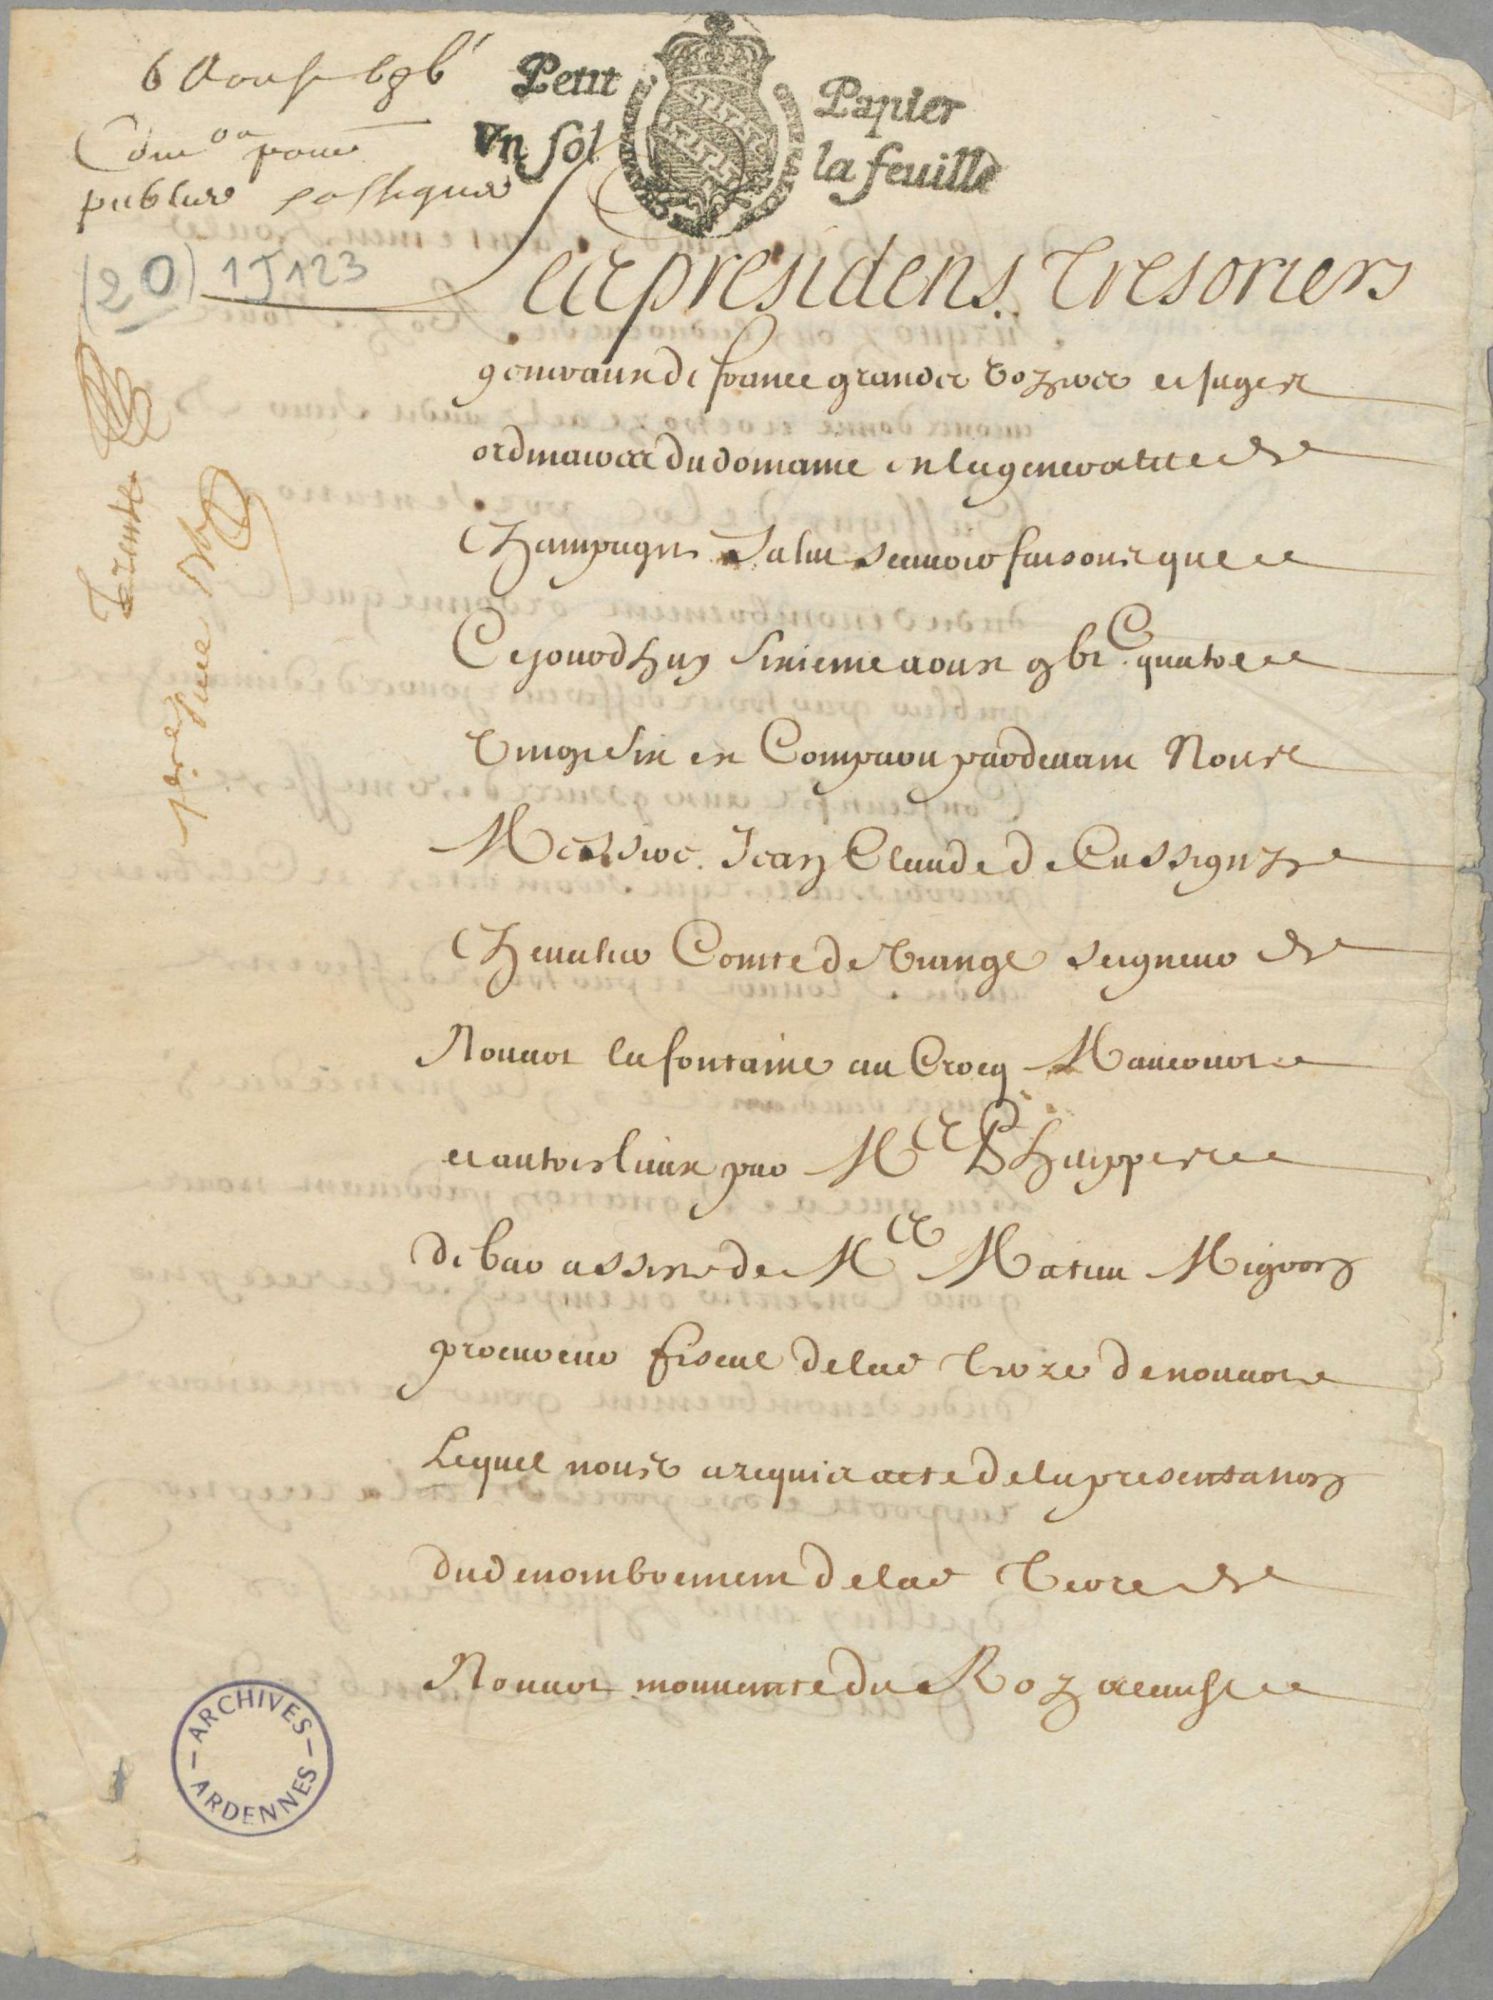 6 Aoust 686
Com.on pour
publier et afficquer
Petit Papier
Vn sol la feuille
(20) 1J123
Les presidens Tresoriers
generaux de france grandz voyers et juges
ordinaires du domaine en la generalité de
Champagne Salut scauoir faisons que
Cejourdhuy sixieme aoust gbi C quatre
Vingt six est Comparu pardeuant Nous
Messire Jean Claude de Cassigny
Cheualier Comte de Viange seigneur de
Nouuot la fontaine au Crocq Maucourt
et autres lieux par Me Phelippes
de bar assisté de Me Martin Mignon
procureur fiscal de lad Terre de nouuot
Lequel nous a requis acte de la presentation
du denombrement de lad Terre de
Nouuot mouuante du Roy a cause
Trente
piece
ARCHIVES
ARDENNES